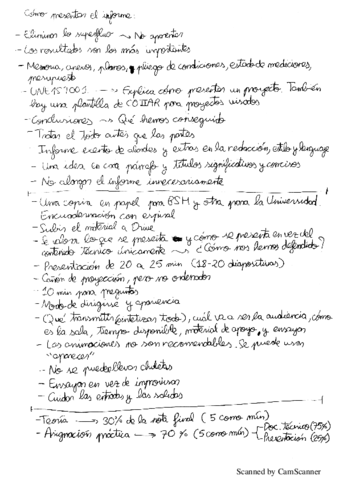 Cómo presentar el informe:
- Eliminar lo superfluo → No aparentes
- Los resultados son los más importantes
- Memoria, anexos, planos, pliego de condiciones, estado de mediciones,
presupuesto
- UNE 157001 → Explica cómo presentar un proyecto. También
hay una plantilla de COIIAR para proyectos visados
- Conclusiones → Qué hemos conseguido
- Tratar el todo antes que las partes
- Informe exento de alardes y extras en la redacción, estilo y lenguaje
- Una idea en cada párrafo y títulos significativos y concisos
- No alargar el informe innecesariamente
- Una copia en papel para BSH y otra para la Universidad
Encuadernación con espiral
- Subir el material a Drive
- Se valora lo que se presenta y cómo se presenta en vez del
contenido técnico únicamente → ¿Cómo nos hemos defendido?
- Presentación de 20 a 25 min (18-20 diapositivas)
- Cañón de proyección, pero no ordenador
- 10 min para preguntas
- Modo de dirigirse y apariencia
- (Qué transmitir (sintetizar todo), cuál va a ser la audiencia, cómo
es la sala, tiempo disponible, material de apoyo, y ensayar
- Las animaciones no son recomendables. Se puede usar
"aparecer"
- No se puede llevar chuletas
- Ensayar en vez de improvisar
- Cuidar las entradas y las salidas
- Teoría → 30% de la nota final (5 como mín)
- Asignación práctica → 70% (5 como mín) - Doc. Técnico (75%)
- Presentación (25%)
Scanned by CamScanner